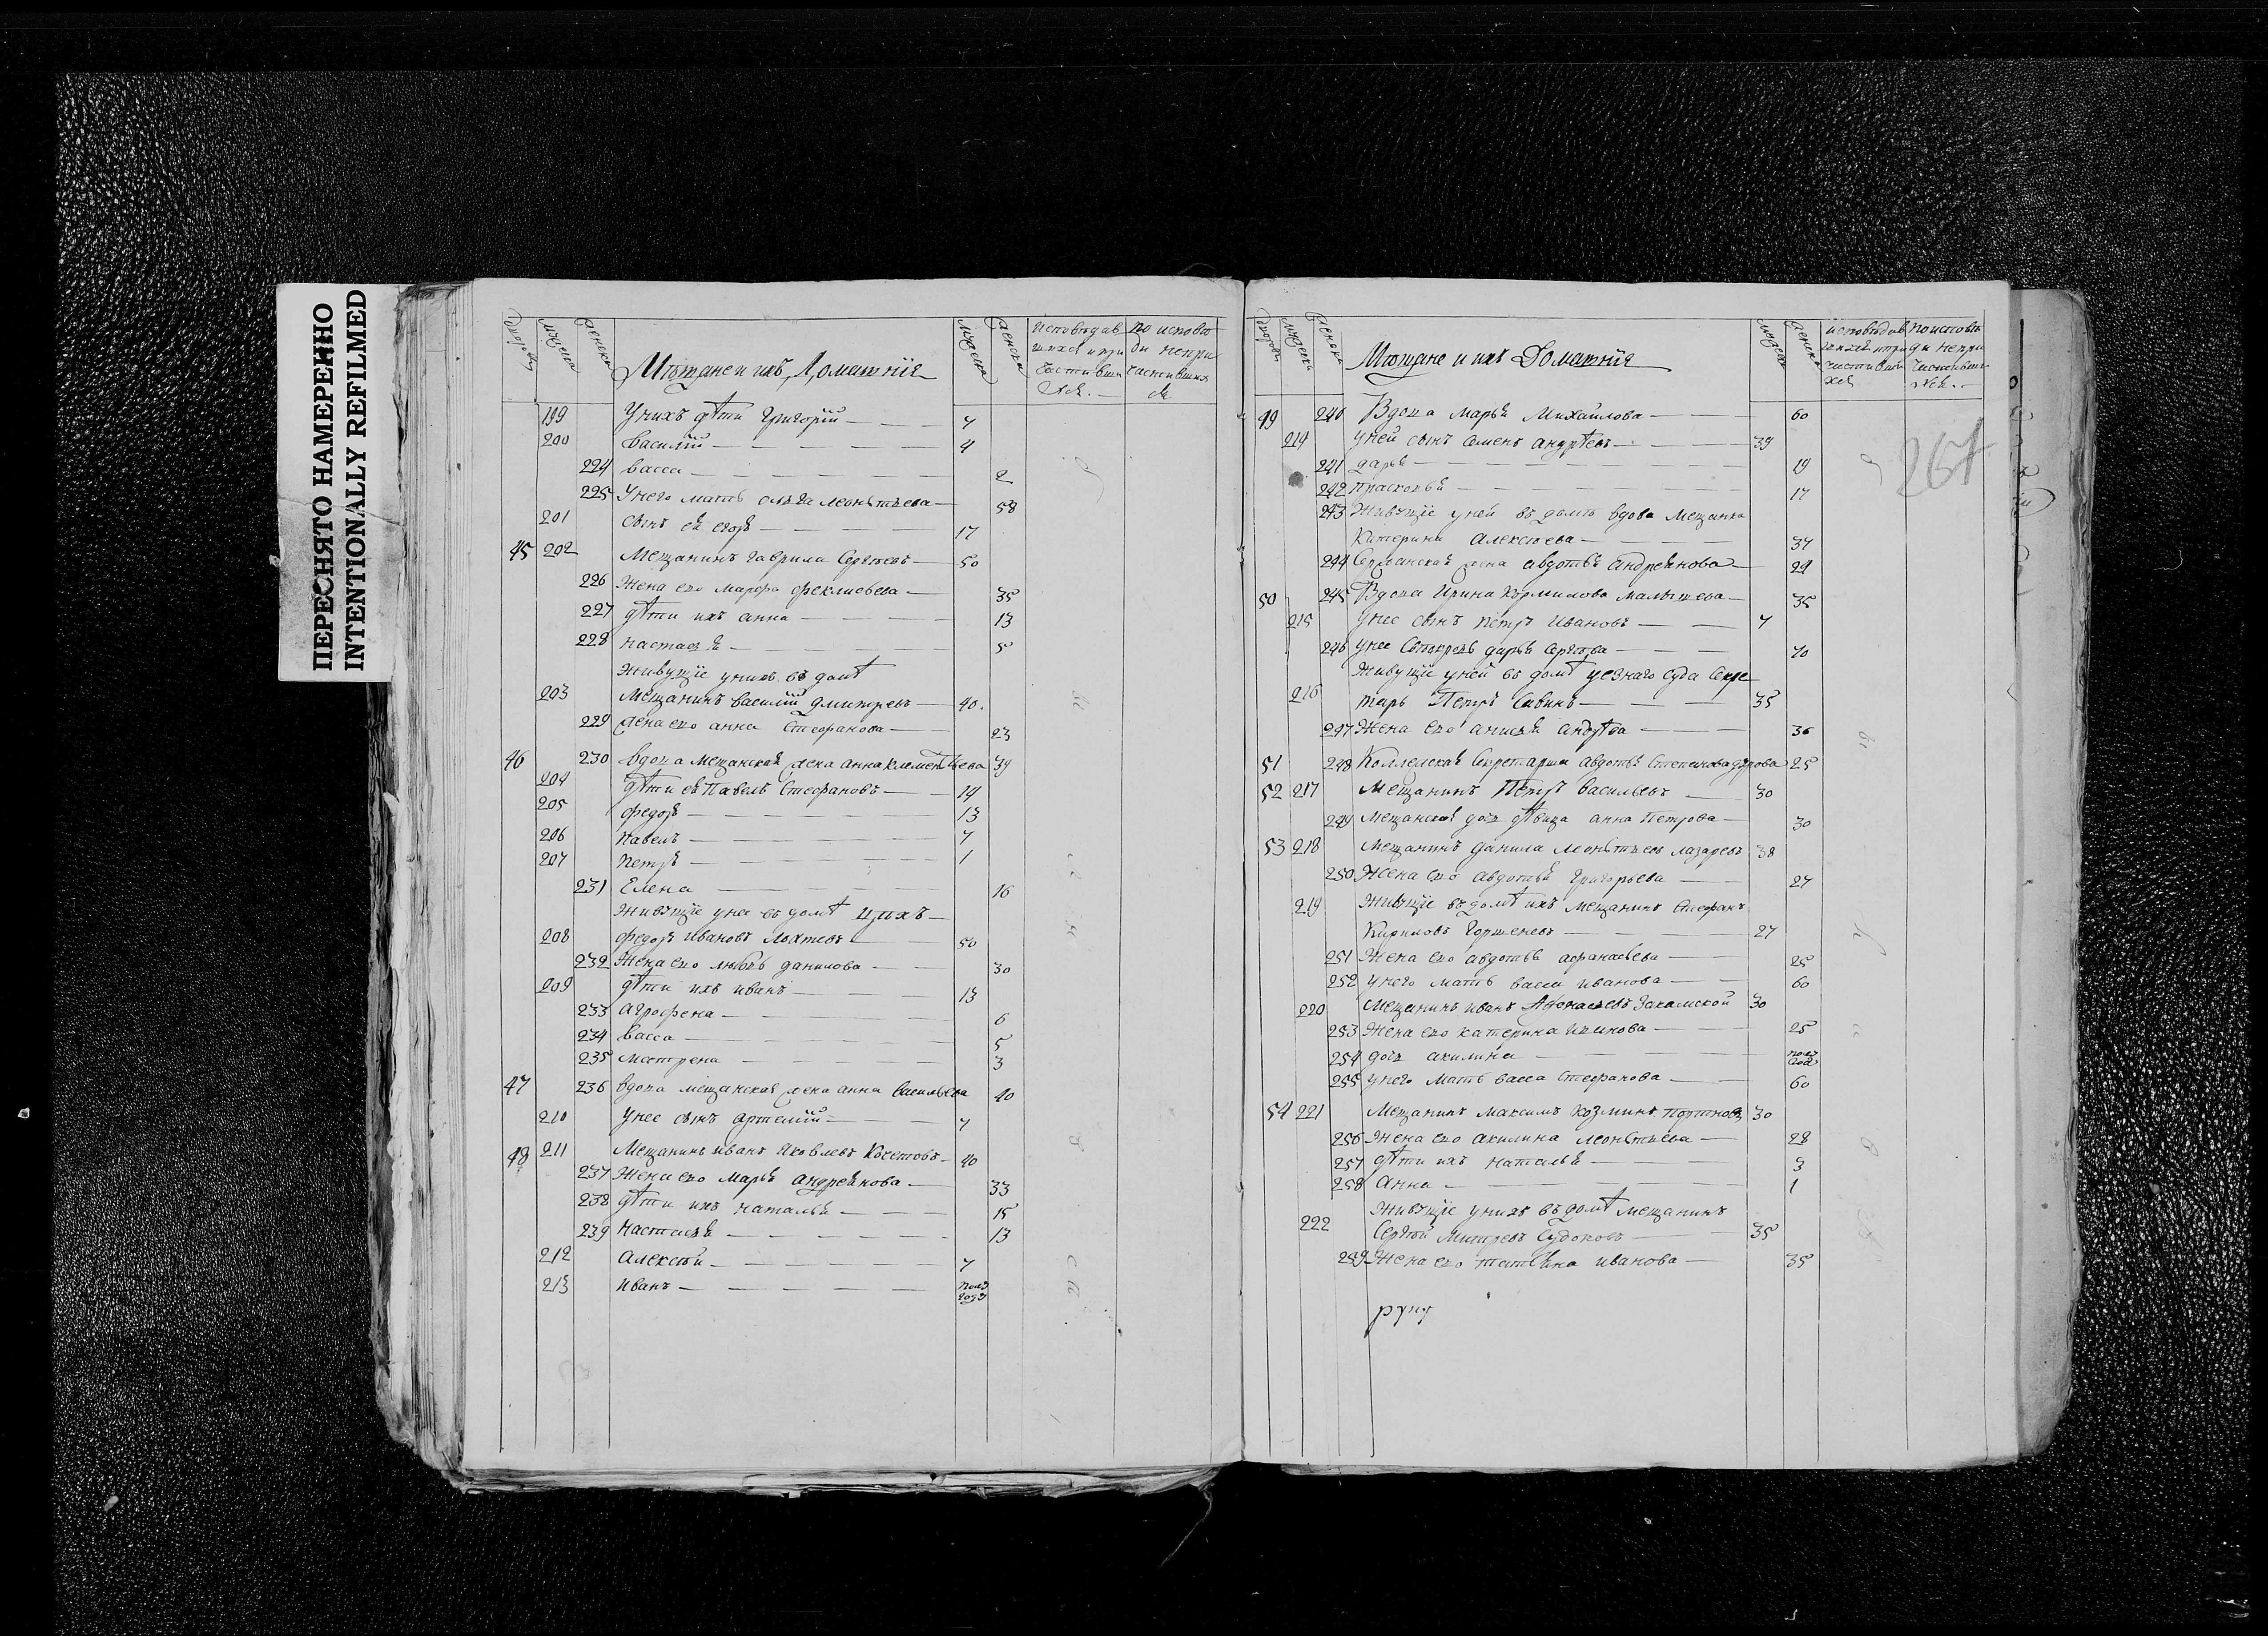 ПЕРЕСНЯТО НАМЕРЕННО
INTENTIONALLY REFILMED
Мѣщане и ихъ Домашнiя
исповѣдав по исповѣ
шихся и при ди непри
частивши частивших
хся. ся
199 Унихъ дѣти Григорiй 7
200 Василiй 4
224 васса 2
225 Унего мать ольга леонтьева 58
201 сынъ ея егоръ 17
45 202 Мещанинъ гаврила Сергѣевъ 50
226 Жена его марфа феклисьева 35
227 дѣти ихъ анна 13
228 настасья 5
Живущiе унихъ въ домѣ
203 Мещанинъ василiй дмитревъ 40.
229 жена его анна Стефанова 23
46 230 вдова мещанская жена анна клементьева 39
204 дѣти ея Павелъ Стефановъ 14
205 федоръ 13
206 павелъ 7
207 петръ 1
231 Елена 16
Живущiе унее въ домѣ
208 федоръ ивановъ 50
232 Жена его любовь данилова 30
209 дѣти ихъ иванъ 13
233 аграфена 6
234 васса 5
235 мотрена 3
47 236 вдова мещанская жена анна васильева 40
210 Унее сынъ артемiй 7
48 211 Мещанинъ иванъ яковлевъ Кочетовъ 40
237 Жена его марья андреянова 33
238 дѣти ихъ наталья 15
239 настасья 13
212 алексѣй 7
213 иванъ полъ года
Мѣщане и ихъ Домашнiя
исповѣдав по исповѣ
шихся и при ди непри
частивши частивши
хся хся.
267
49 240 Вдова марья Михайлова 60
214 Уней сынъ семенъ андрѣевъ 39
241 дарья 19
242 прасковья 17
243 Живущiе уней въ домѣ вдова Мещанка
Катерина Алексѣева 37
244 жена авдотья андреянова 24
50 245 Вдова Ирина Кормилова малышева 35
215 Унее сынъ петръ Ивановъ 7
246 Унее свекровь дарья сергѣева 70
Живущiе уней въ домѣ уезнаго суда Секре
216 тарь Петръ Савинъ 35
247 Жена его анисья андрѣева 36
51 248 Секретарша авдотья Степанова 25
52 217 Мещанинъ Петръ васильевъ 30
249 Мещанская дочь дѣвица анна Петрова 30
53 218 Мещанинъ данила леонтьевъ лазаревъ 38
250 Жена его авдотья григорьева 27
219 Живущiе въ домѣ ихъ мещанинъ Стефанъ
Кириловъ Горшеневъ 27
251 Жена его авдотья афанасьева 25
252 унего мать васса иванова 60
220 Мещанинъ иванъ Афонасьевъ Закамской 30
253 Жена его катерина 25
254 дочь акилина полъ года
255 унего мать васса Стефанова 60
54 221 Мещанинъ максимъ козминъ портновъ 30
256 Жена его акилина леонтьева 28
257 дѣти ихъ наталья 3
258 Анна 1
Живущiе унихъ въ домѣ мещанинъ
222 Сергѣй Митревъ Судоковъ 35
259 Жена его татьяна иванова 35